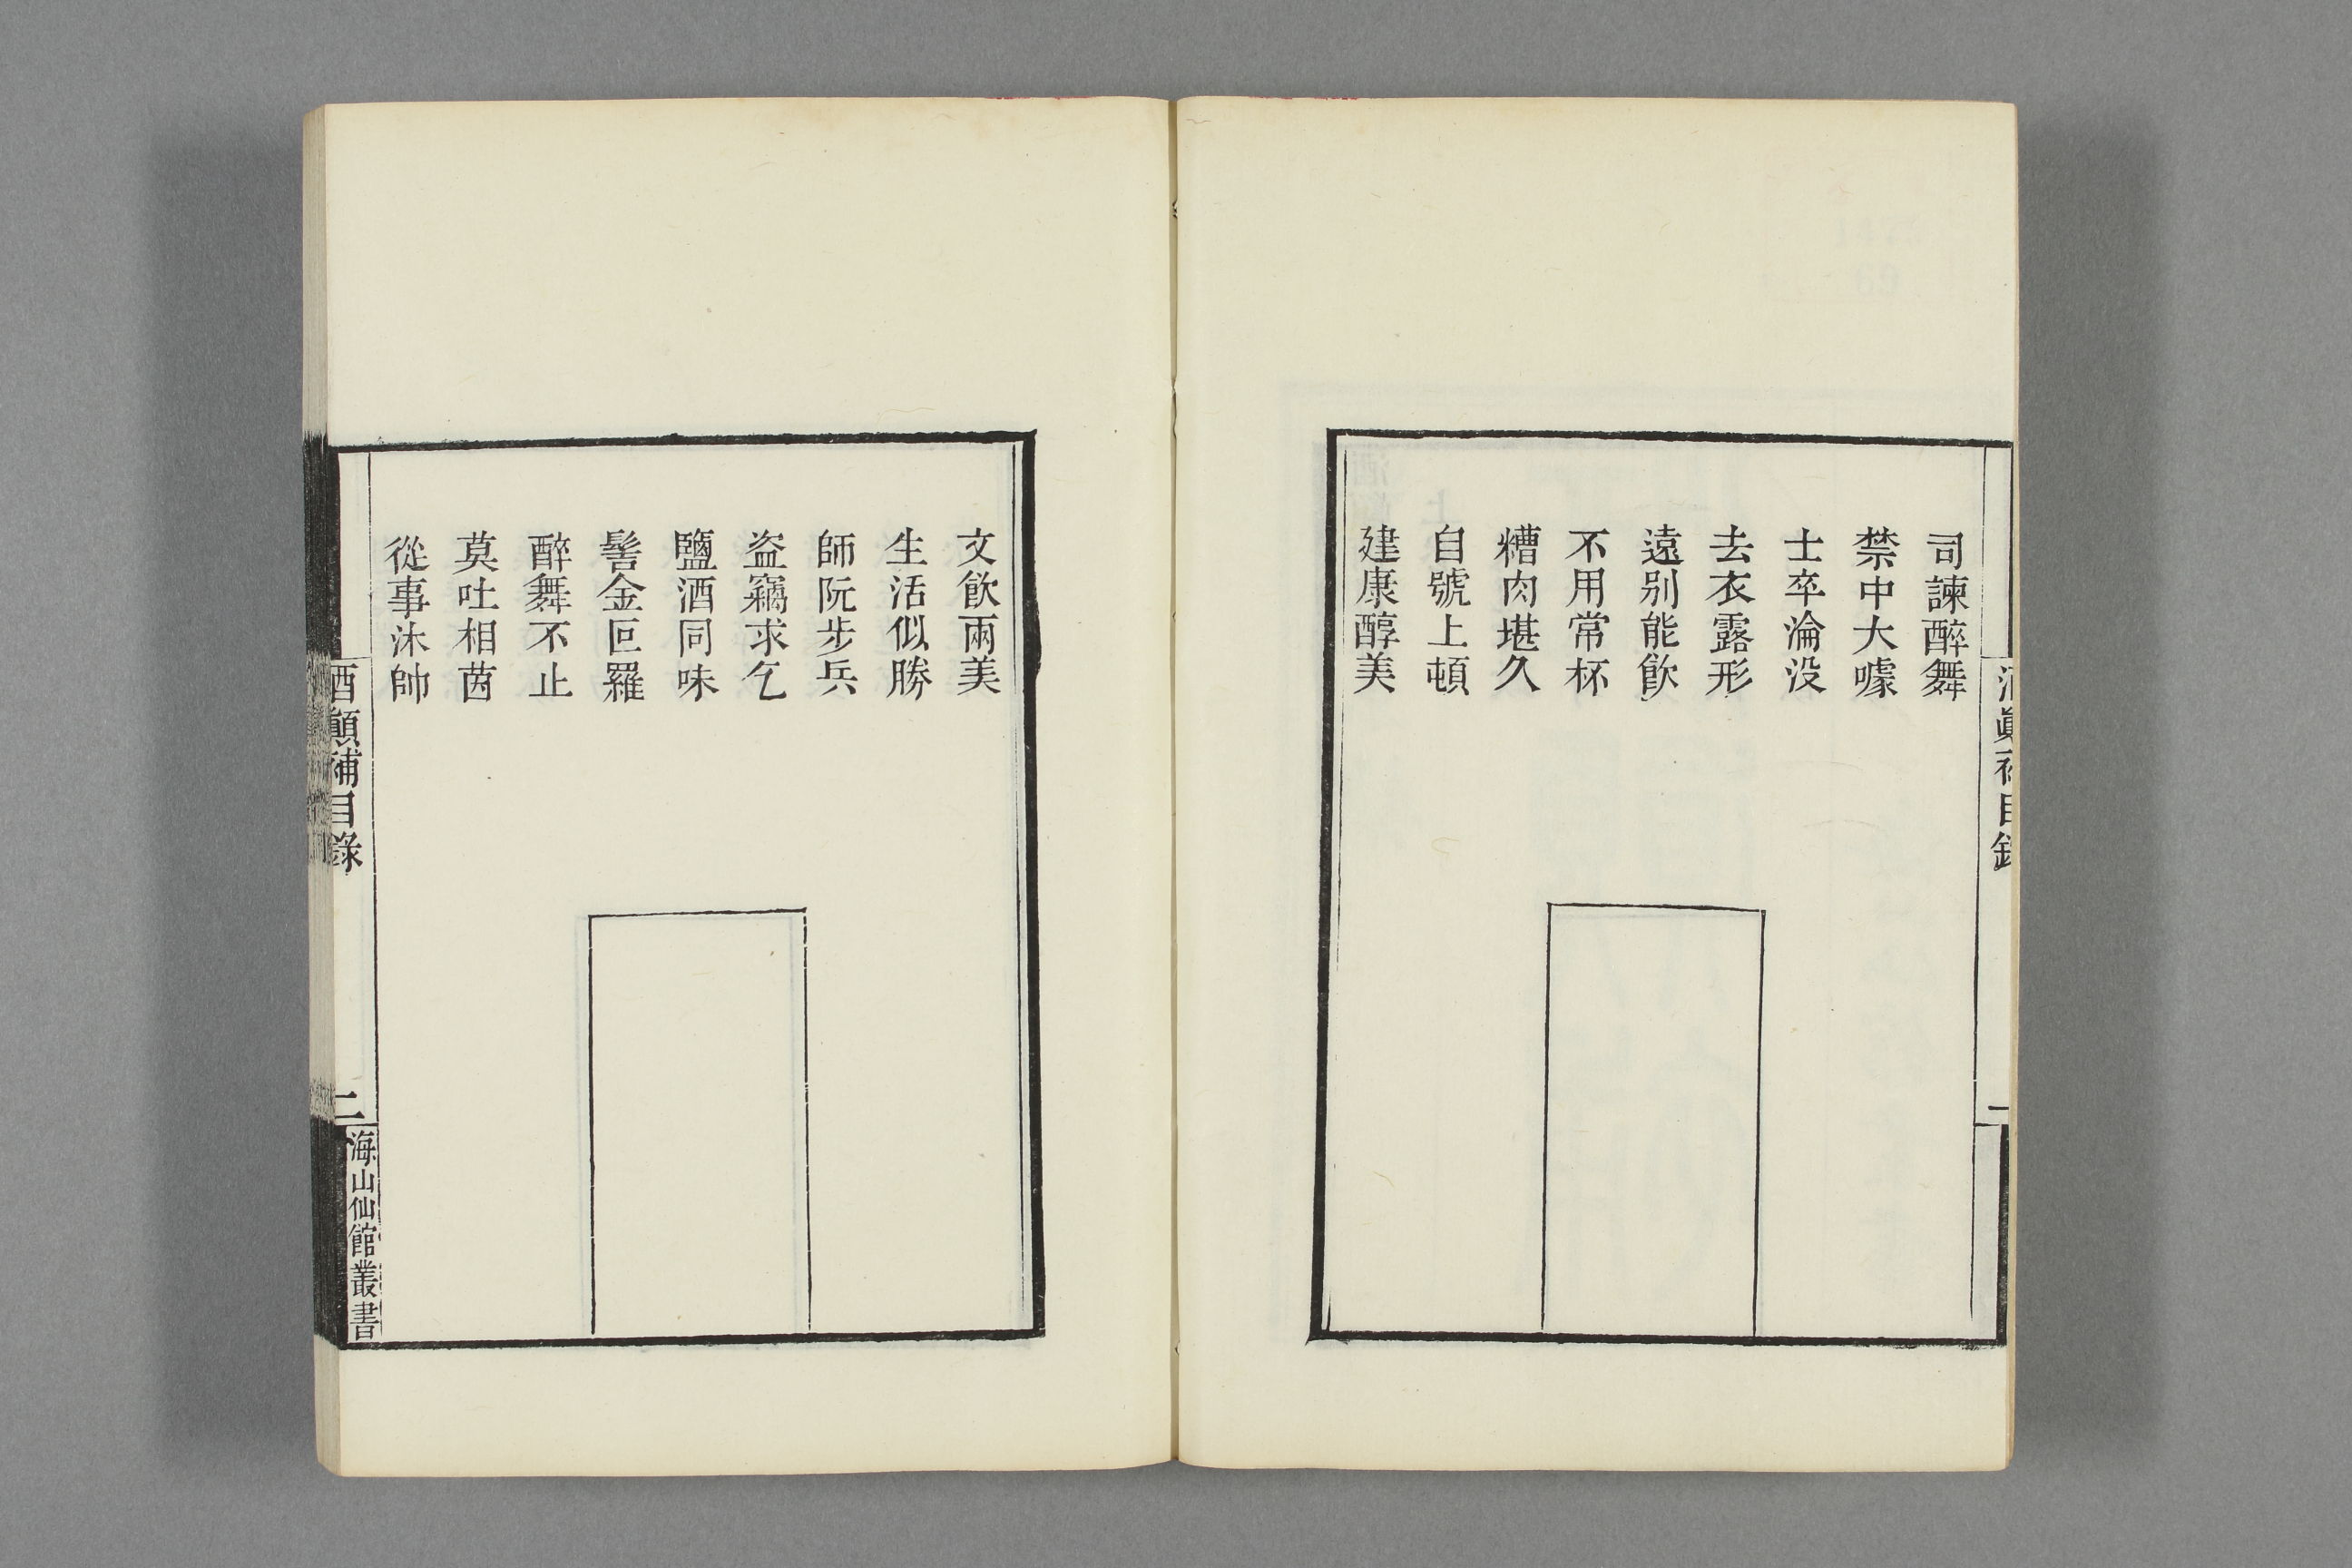 司諫醉舞
禁中大噱
士卒淪没
去衣露形
遠别能飲
不用常杯
糟肉堪久
自號上頓
建康醇美
文飲兩美
生活似勝
師阮步兵
盗竊求乞
鹽酒同味
髻金叵羅
醉舞不止
莫吐相茵
從事沐帥
酒顛補目錄
二
海山仙館叢書